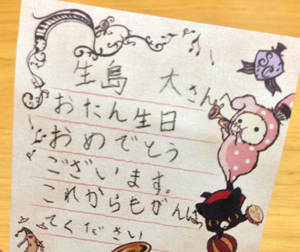 生島 大さんへ
おたん生日
おめでとう
ございます。
これからもがんば
てください